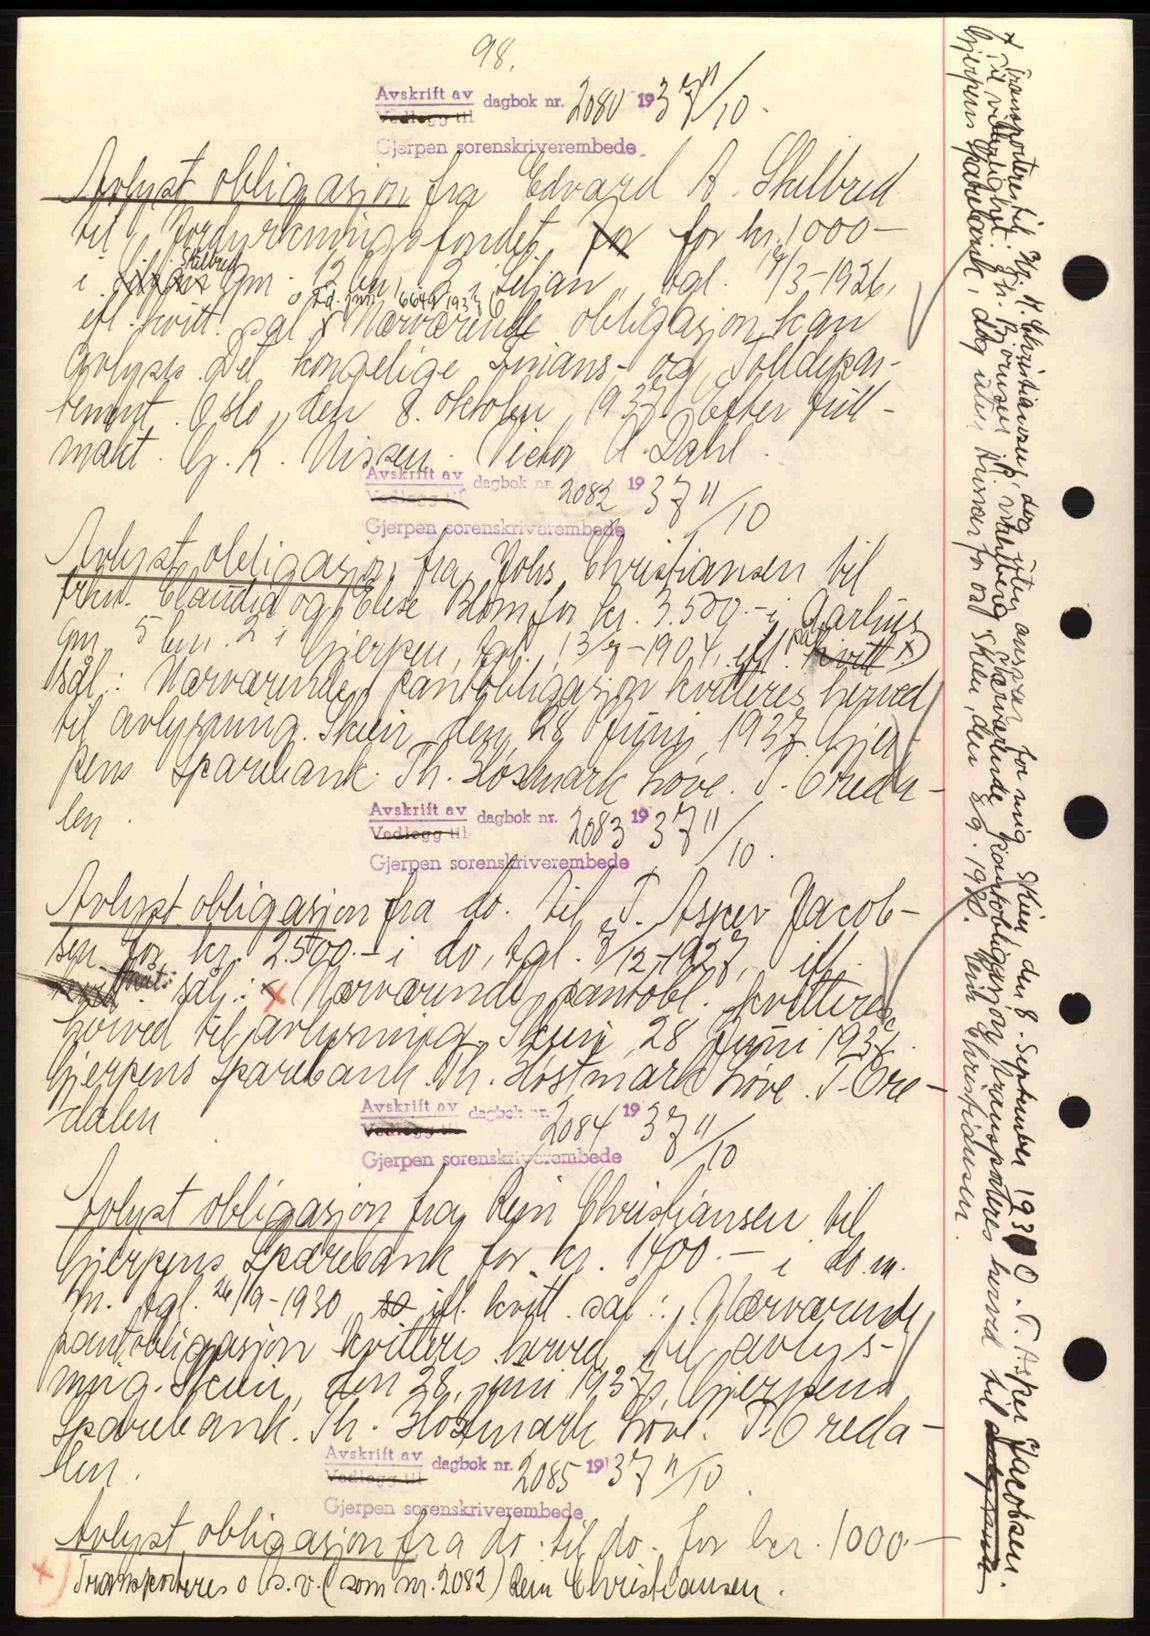 98.
Avskrift av
Vedlegg til
dagbok nr. 2080 1937 11/10.
Gjerpen sorenskriverembede.
Avlyst obligasjon fra Edvard A. Skilbred
til Nordyrkningsfondet for for kr. 1000–
i Skilbred gnr. 12 bnr. 2 i Siljan, tgl. /3-1926,
ifl. kvitt. sål. Nærværende obligasjon kan
avlyses. Det kongelige Finans- og Tolldepar-
tement. Oslo, den 8. oktober 1937. Efter full-
makt. G. K. Nissen. Victor A. Dahl.
Avskrift av
Vedlegg til
dagbok nr. 2082 1937 11/10
Gjerpen sorenskriverembede
Avlyst obligasjon fra Johs Christiansen til
frkn. Claudia og Elise Blom for kr. 3.500.– i Aarhus
gnr. 5 bnr. 2 i Gjerpen, tgl. 13/7-1904, ifl. kvitt x)
sål: Nærværende pantobligasjon kvitteres herved
til avlysning. Skien den 28 Juni 1937. Gjer-
pens Sparebank. Th. Høstmark Løve. T. Ereda-
len.
Avskrift av
Vedlegg til
dagbok nr. 2083 1937 11/10.
Gjerpen sorenskriverembede
Avlyst obligasjon fra do. til T. Asper Jacob-
sen for kr. 2500.– i do, tgl. 7/12-1927, ifl.
påt: sål: x Nærværende pantobl. kvitteres
herved til avlysning. Skien 28 Juni 1937.
Gjerpens Sparebank. Th. Høstmark Løve. T. Ere-
dalen
Avskrift av
Vedlegg til
dagbok nr. 2084 1937 11/10
Gjerpen sorenskriverembede
Avlyst obligasjon fra Rein Christiansen til
Gjerpens Sparebank for kr. 1400.– i do m.
m. tgl. 26/9-1930, so ifl. kvitt. sål: Nærværende
pantobligasjon kvitteres herved til avlys-
ning. Skien, den 28. juni 1937. Gjerpens
Sparebank. Th. Høstmark Løve. T. Ereda-
len.
Avskrift av
Vedlegg til
dagbok nr. 2085 1937 11/10
Gjerpen sorenskriverembede
Avlyst obligasjon fra do. til do. for kr. 1000.–
x) Transporteres o.s.v. (som nr. 2082) Rein Christiansen.
x Transporteres til Hr. R. Christiansen, dog uten ansvar for mig. Skien den 8. September 1930. T. Asper Jacobsen.
Nærværende pantobligasjon transporteres herved til
Gjerpens Sparebank, dog uten ansvar for os. Skien, den 8/9. 1930. Rein Christiansen.